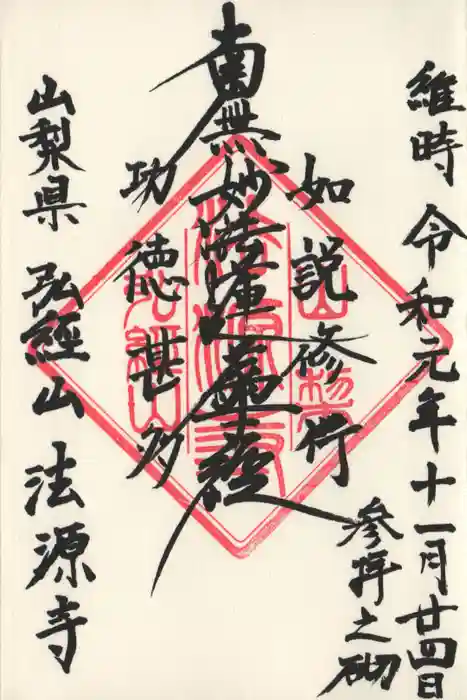 維時 令和元年十一月廿四日
参拝之砌
如説修行
南無妙法蓮華経
功徳甚多
山梨県 弘經山 法源寺